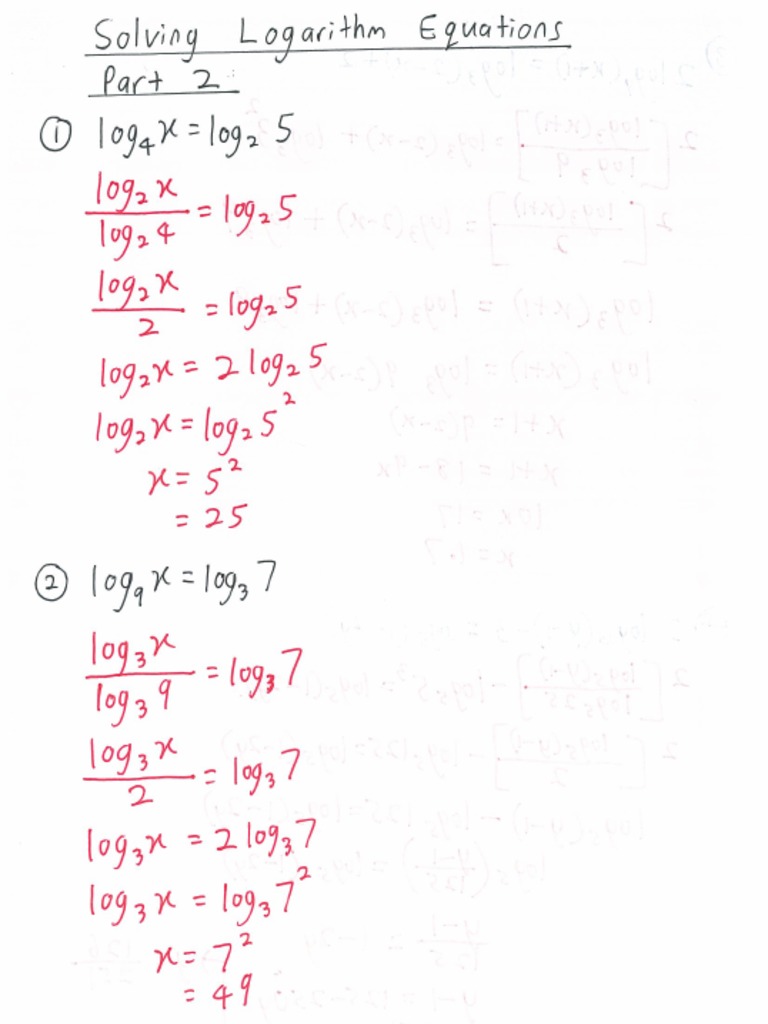 Solving Logarithm Equations
Part 2
① log₄x = log₂5
log₂x / log₂4 = log₂5
log₂x / 2 = log₂5
log₂x = 2 log₂5
log₂x = log₂5²
x = 5²
= 25
② log₉x = log₃7
log₃x / log₃9 = log₃7
log₃x / 2 = log₃7
log₃x = 2 log₃7
log₃x = log₃7²
x = 7²
= 49